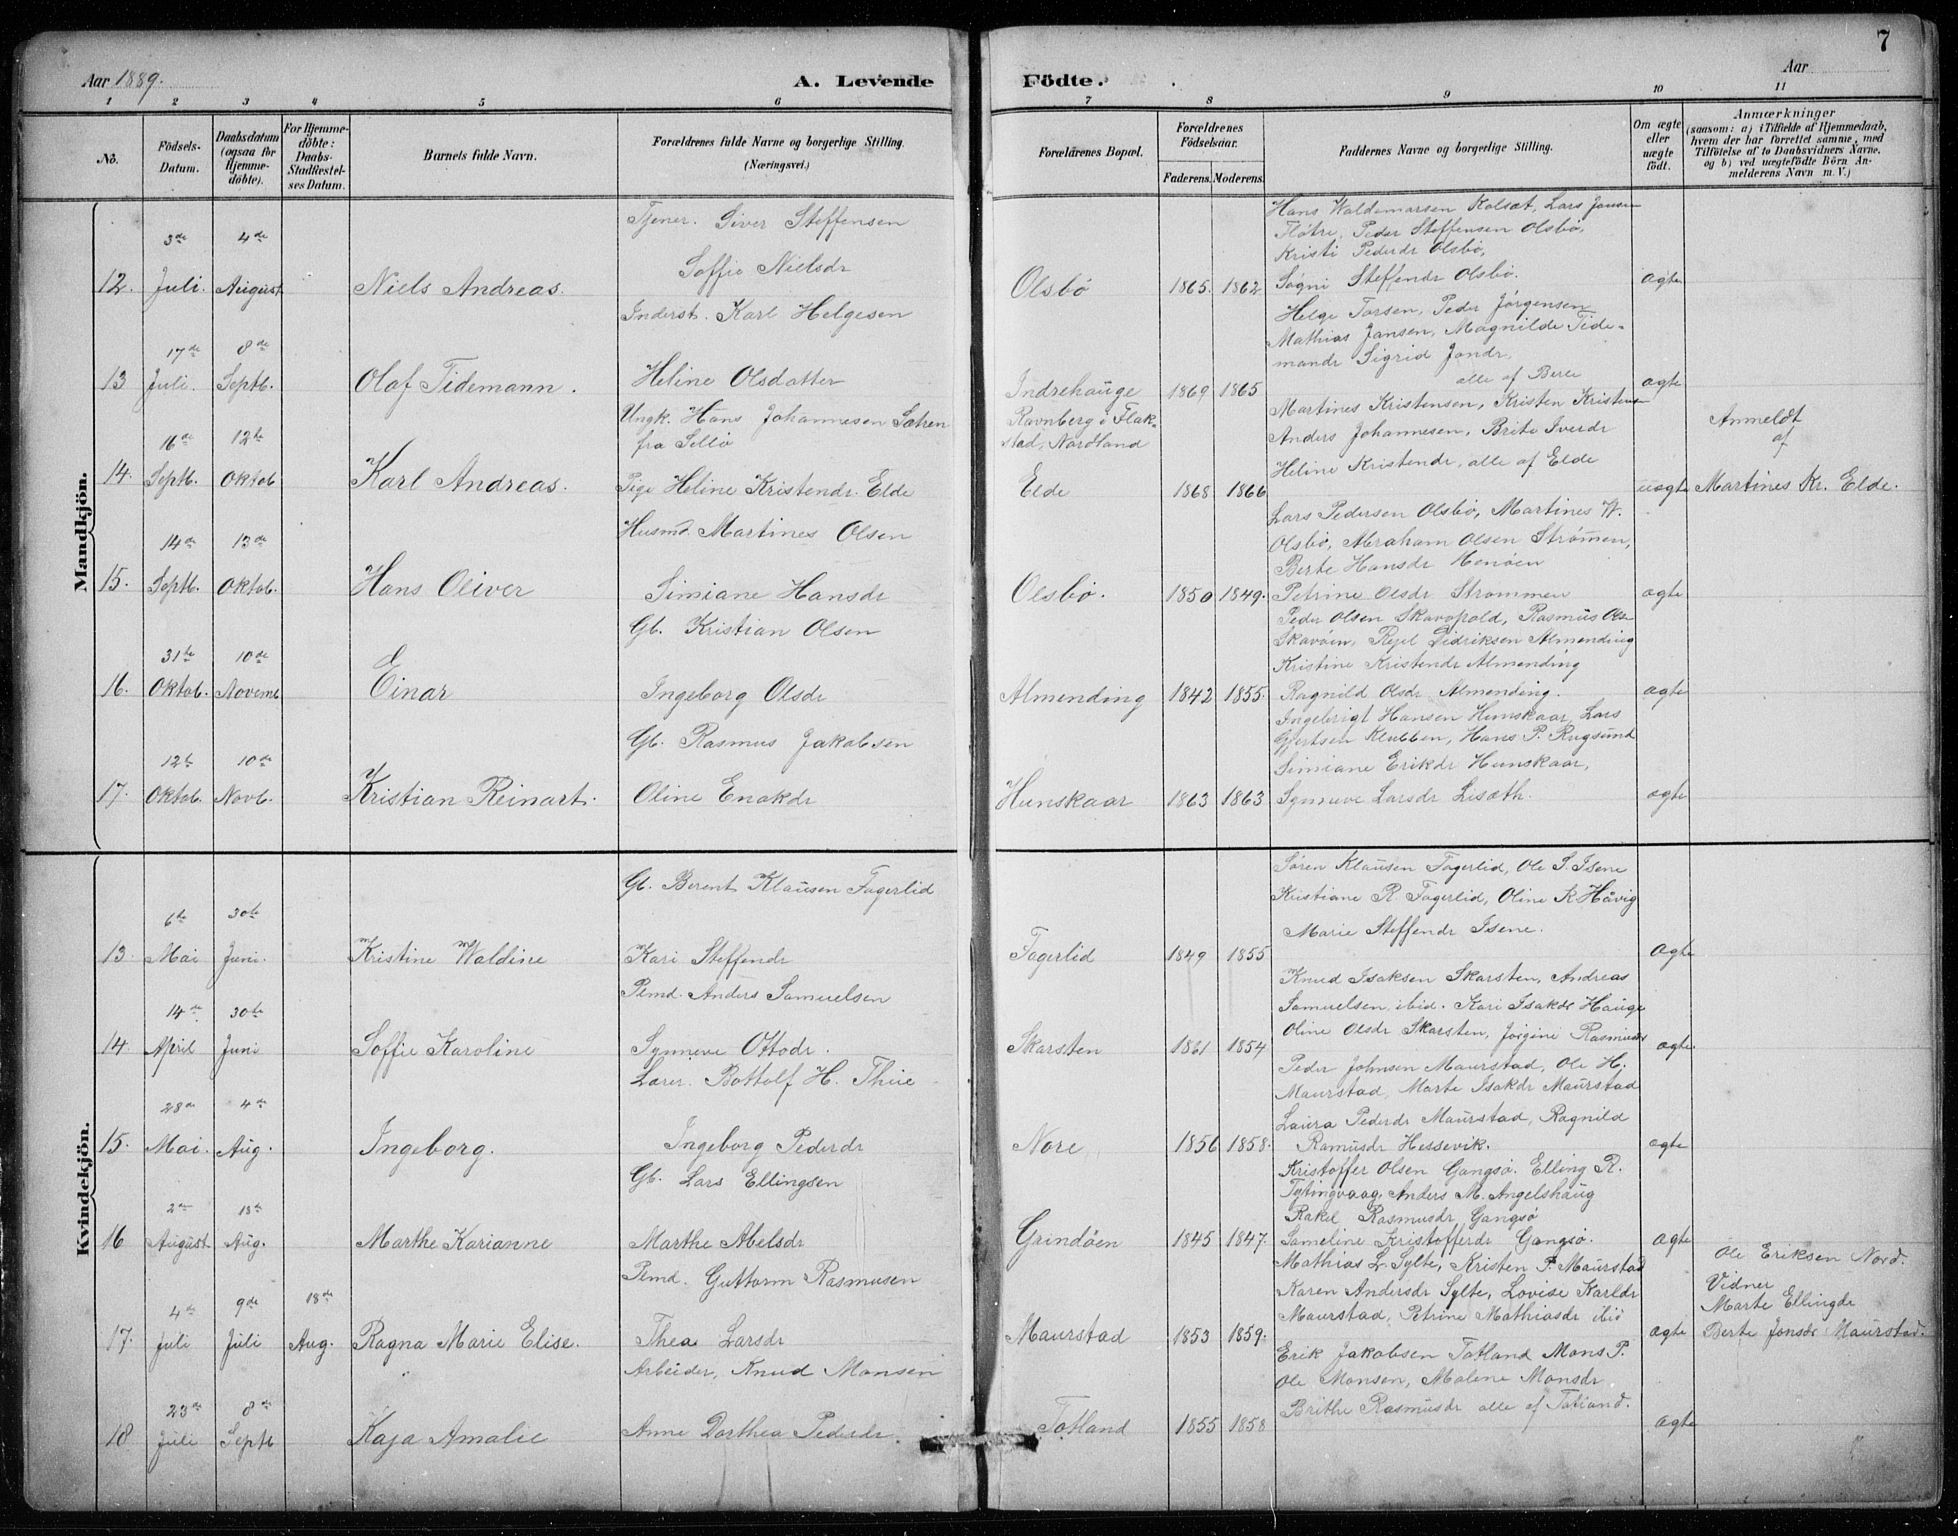 7
Aar 1889.
A. Levende Födte.
Aar
1 2 3 4 5 6 7 8 9 10 11
No.
Födsels-Datum.
Daabsdatum (ogsaa for Hjemme-döbte).
For Hjemme-döbte: Daabs-Stadfestel-ses Datum.
Barnets fulde Navn.
Forældrenes fulde Navne og borgerlige Stilling.
(Næringsvei.)
Forældrenes Bopæl.
Forældrenes Födselsaar.
Faderens. Moderens.
Faddernes Navne og borgerlige Stilling.
Om ægte eller uægte födt.
Anmærkninger
(saasom: a) i Tilfælde af Hjemmedaab, hvem der har forrettet samme, med Tilföielse af to Daabsvidners Navne, og b) ved uægtefödte Börn An-melderens Navn m. V.)
Mandkjön.
12. 3de Juli. 4de August Niels Andreas.
Tjener. Siver Steffensen
Soffie Nielsdr
Olsbö 1865. 1862
Hans Waldemarsen Kolsæt, Lars Jansen
Fløtre, Peder Steffensen Olsbø,
Kristi Pedersdr Olsbø,
Søgni Steffendr Olsbø.
agte
13 17de Juli. 8de Septb. Olaf Tidemann.
Inderst. Karl Helgesen
Heline Olsdatter
Indrehauge 1869 1865
Helge Tarsen, Peder Jørgensen
Mathias Jansen, Magnilde Tide-
mandr Sigrid Jondr,
alle af Berle
agte
14. 16de Septb. 12te Oktob Karl Andreas.
Ungk. Hans Johannesen Sætren
fra Sellö
Pige Heline Kristendr. Elde
Ravnberg i Flak-
stad, Nordland
Elde 1868 1866
Martines Kristensen, Kristen Kristense
Anders Johannesen, Brite Iverdr
Heline Kristendr, alle af Elde
uagte
Anmeldt
af
Martines Kr. Elde.
15. 14de Septb. 13de Oktob. Hans Oliver
Husmd Martines Olsen
Simiane Hansdr
Olsbö. 1850 1849.
Lars Pedersen Olsbö, Martines W.
Olsbö, Abraham Olsen Strømmen,
Berte Hansdr Henöen
Petrine Olsdr Strommen
agte
16. 31te Oktob. 10de Novemb Einar
Gb. Kristian Olsen
Ingeborg Olsdr
Almending 1842 1855.
Peder Olsen Skavopold, Rasmus Olse
Skavöen, Rejel Didriksen Almending
Kristine Kristendr Almending
Ragnild Olsdr Almending.
agte
17. 12te Oktob. 10de Novb. Kristian Reinart.
Gb. Rasmus Jakobsen
Oline Enokdr
Hunskaar 1863 1863
Ingebrigt Hansen Hunskaar, Lars
Gjertsen Klubben, Hans P. Rugsund
Simiane Erikdr Hunskaar,
Synneve Larsdr Lisæth.
agte
Kvindekjön.
13. 6te Mai 30te Juni. Kristine Waldine
Gb. Berent Klausen Fagerlid
Kari Steffendr
Fagerlid 1849 1855
Søren Klausen Fagerlid, Ole S. Isene
Kristiane R. Fagerlid, Oline R Håvig
Marie Steffendr Isene.
agte
14. 14de April 30te Juni Soffie Karoline
Pemd. Anders Samuelsen
Synneve Ottodr.
Skarsten 1861 1854
Knud Isaksen Skarsten, Andreas
Samuelsen, ibid. Kari Isakdr Hauge
Oline Olsdr Skarsten, Jørgine Rasmusdr
agte
15. 28de Mai. 4de Aug. Ingeborg.
Lærer. Bottolf H. Thue
Ingeborg Pederdr
Nore 1856 1858.
Peder Johnsen Maurstad, Ole H.
Maurstad, Marte Isakdr Maurstad
Laura Pederdr Maurstad, Ragnild
Ramusdr Hessevik.
agte
16 2den August 18de Aug. Marthe Karianne
Gb. Lars Ellingsen
Marthe Abelsdr
Grindöen 1845 1847.
Kristoffer Olsen Gangsö. Elling R.
Tytingvaag, Anders M. Angelshaug
Rakel Rasmusdr Gangsø
Sameline Kristofferdr Gangsø.
agte
17. 4de Juli 9de Juli 18de Aug. Ragna Marie Elise.
Pemd. Guttorm Rasmusen
Thea Larsdr
Maurstad 1853 1859.
Mathias L. Sylte, Kristen P. Maurstad
Karen Andersdr Sylte, Lovise Karldr
Maurstad, Petrine Mathiasdr ibid
agte
Ole Eriksen Nord.
Vidner
Marte Ellingdr
Berte Jonsdr Maurstad.
18 23de Juli 8de Septb Kaja Amalie
Arbeider, Knud Monsen
Anne Dorthea Pederdr.
Totland 1855 1858
Erik Jakobsen Totland Mons P.
Ole Monsen, Malene Monsdr
Brithe Rasmusdr alle af Totland.
agte